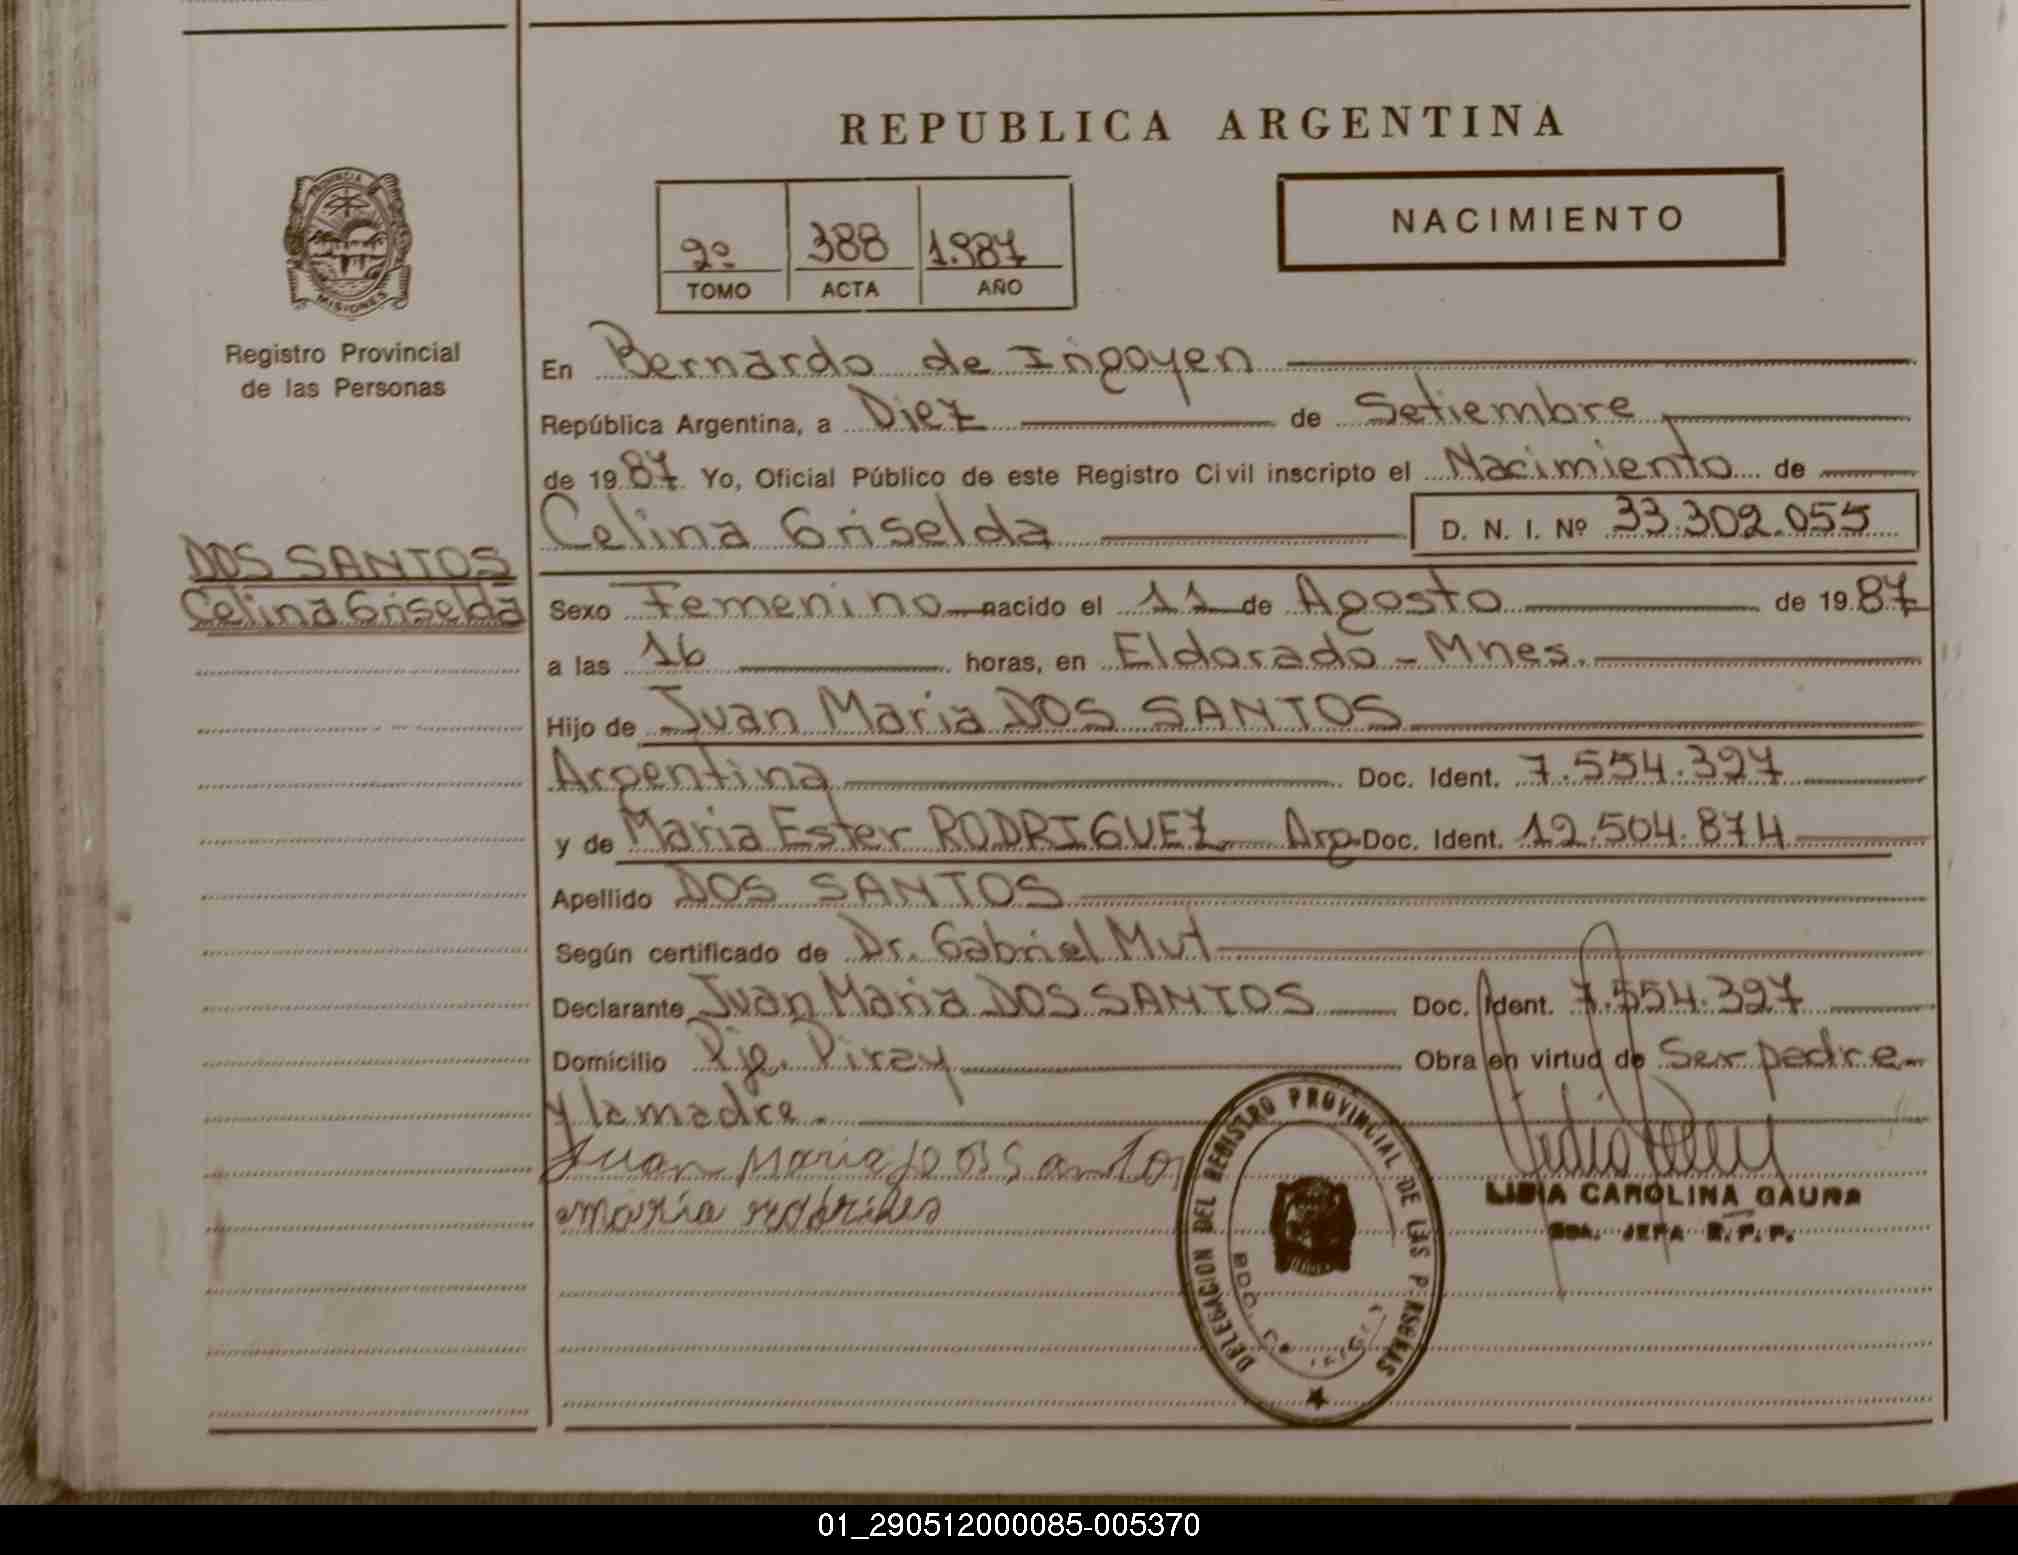 REPUBLICA ARGENTINA
PROVINCIA
MISIONES
Registro Provincial
de las Personas
2º 388 1.987
TOMO ACTA AÑO
NACIMIENTO
En Bernardo de Irigoyen
República Argentina, a Diez de Setiembre
de 1987 Yo, Oficial Público de este Registro Civil inscripto el Nacimiento de
Celina Griselda D. N. I. Nº 33.302.055
DOS SANTOS
Celina Griselda
Sexo Femenino nacido el 11 de Agosto de 1987
a las 16 horas, en Eldorado - Mnes.
Hijo de Juan Maria DOS SANTOS
Argentina Doc. Ident. 7.554.327
y de Maria Ester RODRIGUEZ Arg Doc. Ident. 12.504.874
Apellido DOS SANTOS
Según certificado de Dr. Gabriel Mut
Declarante Juan Maria DOS SANTOS Doc. Ident. 7.554.327
Domicilio Pje. Piray Obra en virtud de Ser padre
y la madre.
Juan Maria Do Santos
maria
DELEGACION DEL REGISTRO PROVINCIAL DE LAS PERSONAS
BDO. DE
LIDIA CAROLINA GAUNA
JEFA R. P. P.
01_290512000085-005370